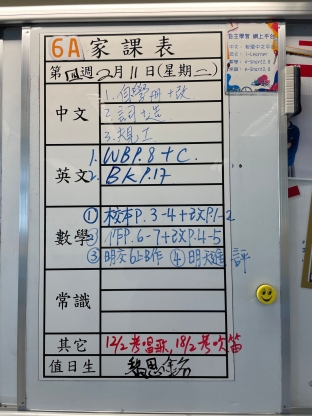 6A 家課表
第四週2月11日(星期二)
中文
1. 自學冊+改
2. 詞
3. 規工
英文
1. WB P.8 + C.
2. BK P.17
數學
① 校本P.3-4+改P.1-2
② 作P.6-7+改P.4-5
③ 明交6上B作 ④ 明天進評
常識
其它
12/2考唱歌, 18/2考吹笛
值日生
自主學習 網上平台